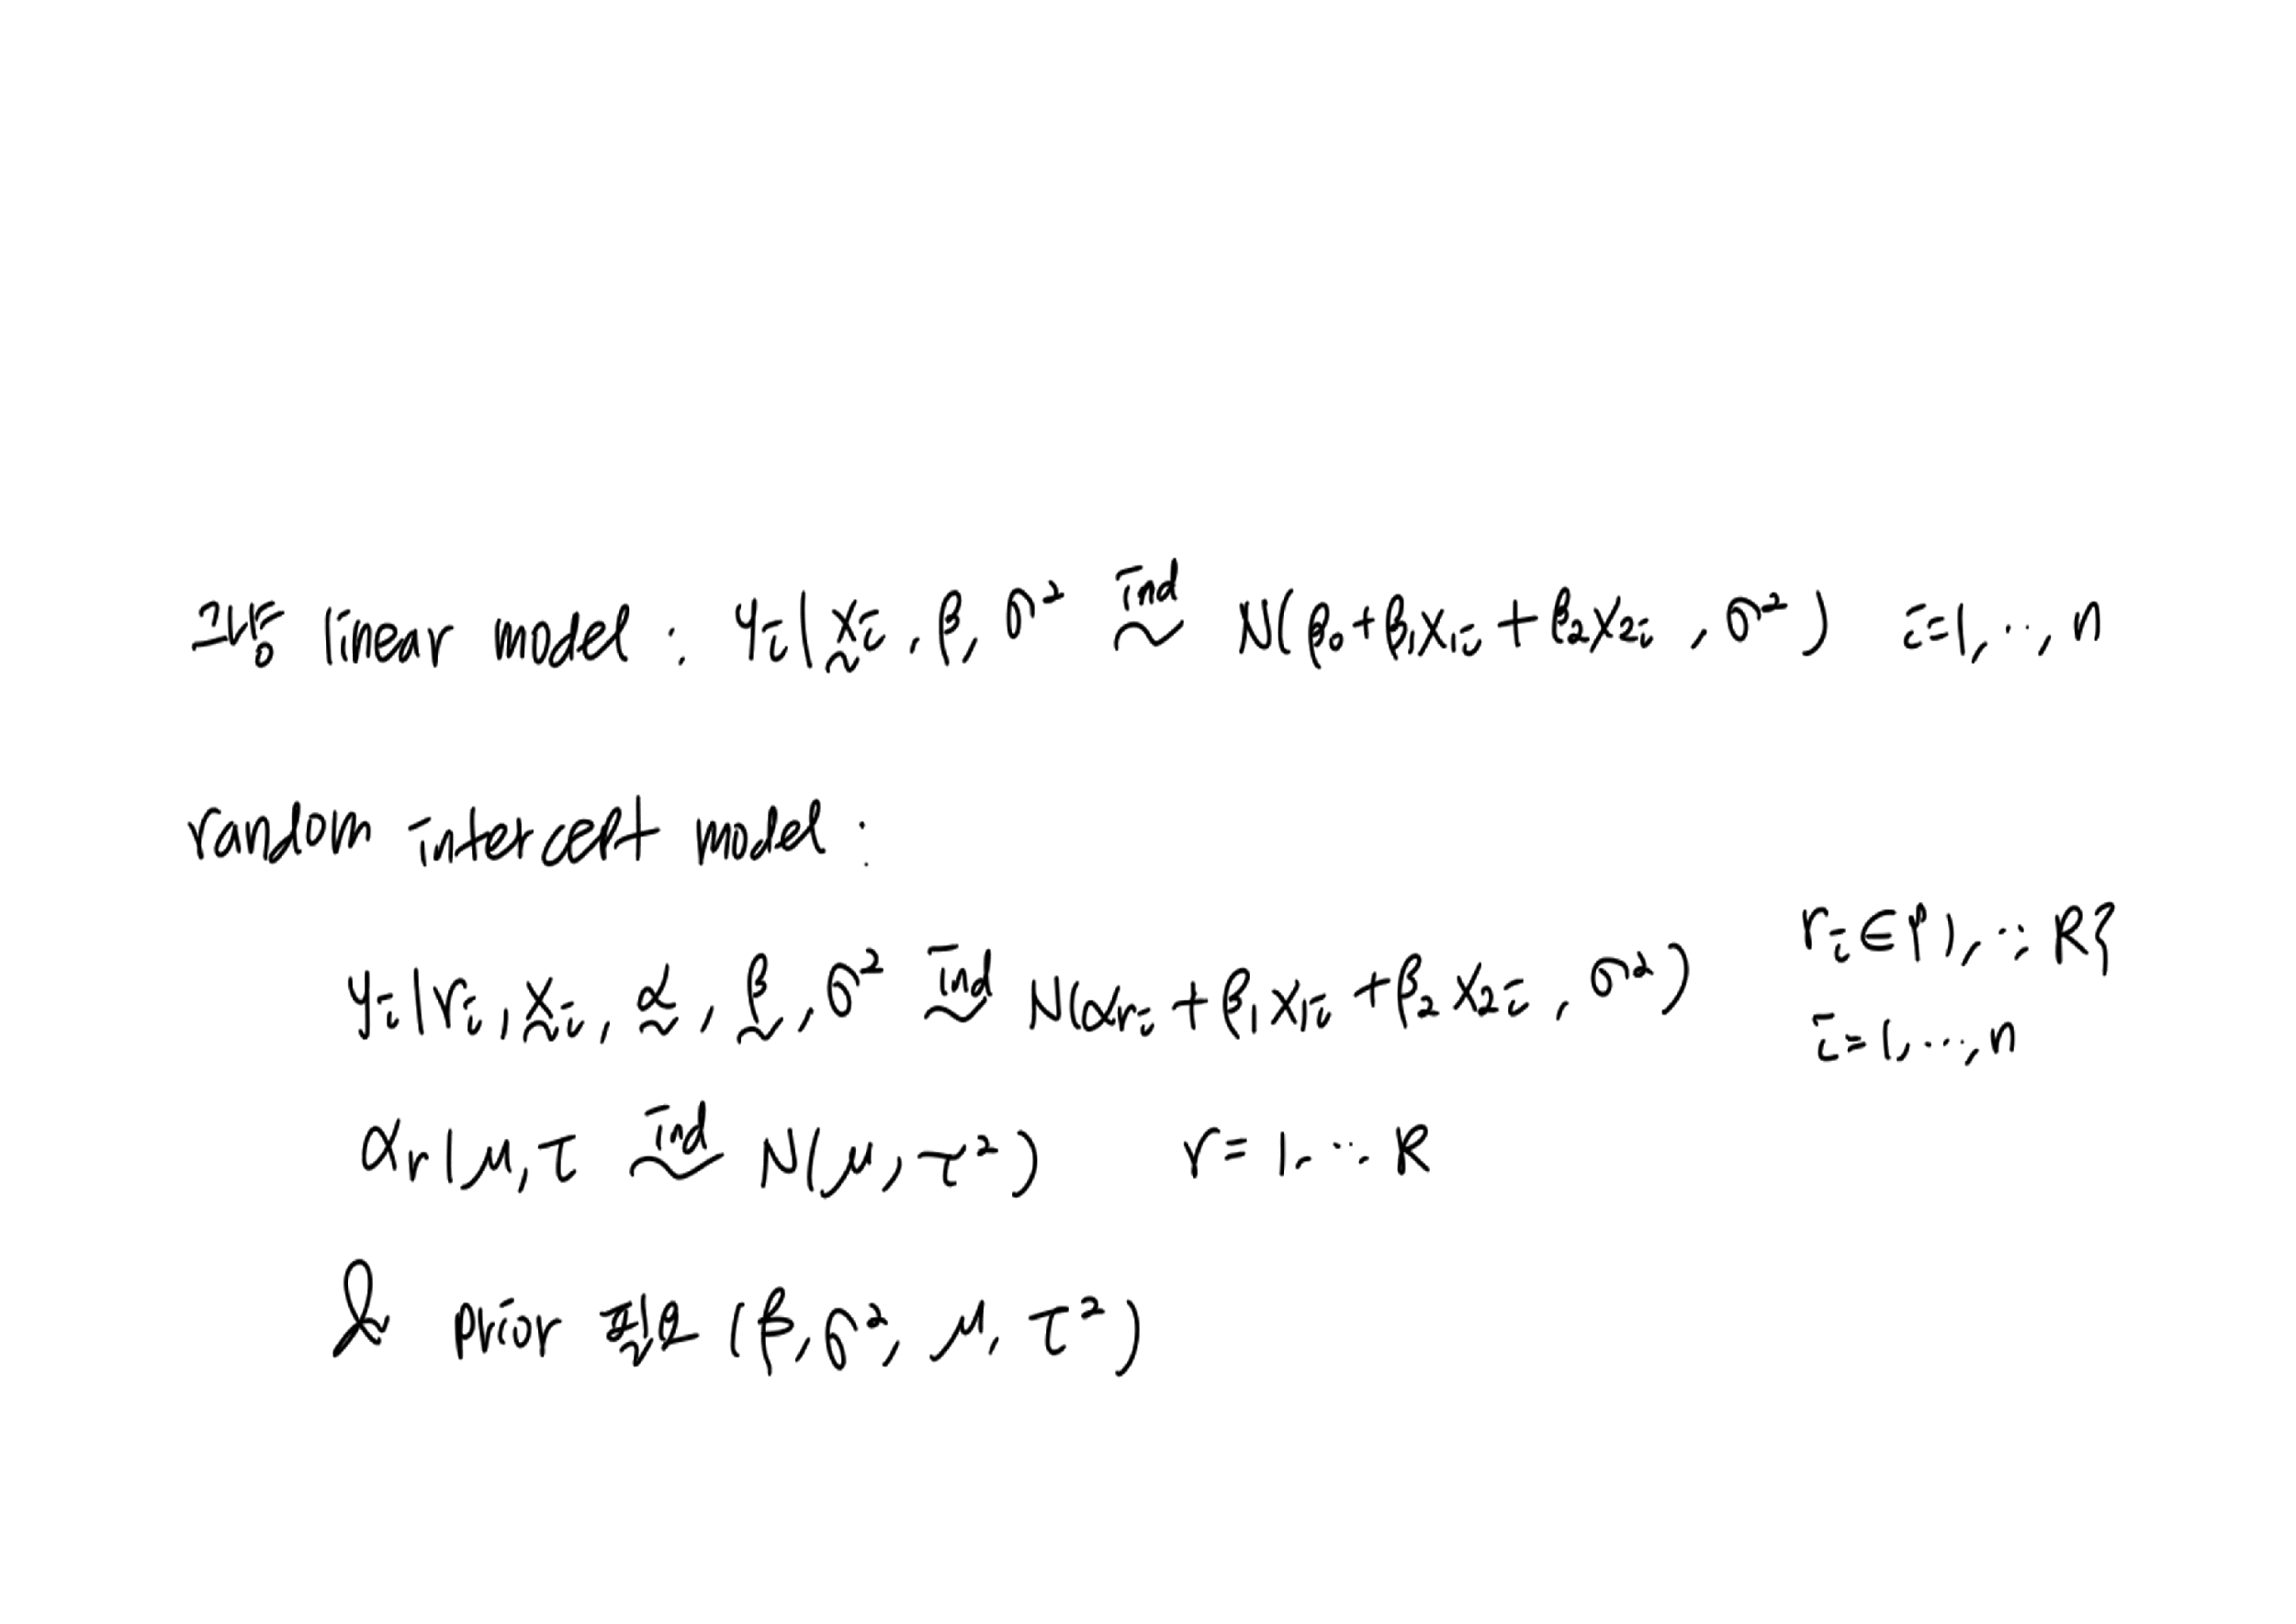 그냥 linear model : yᵢ | x̰ᵢ, β, σ² ~ⁱⁿᵈ N(β₀+β₁x₁ᵢ+β₂x₂ᵢ, σ²) i=1,··,n
random intercept model :
rᵢ∈{1,··, R}
yᵢ | rᵢ, x̰ᵢ, α̰, β̰, σ² ~ⁱⁿᵈ N(αrᵢ+β₁x₁ᵢ+β₂x₂ᵢ, σ²)
i=1,···,n
αr | μ, τ ~ⁱⁿᵈ N(μ, τ²) r=1,··, R
& prior 필요 (β, σ², μ, τ²)